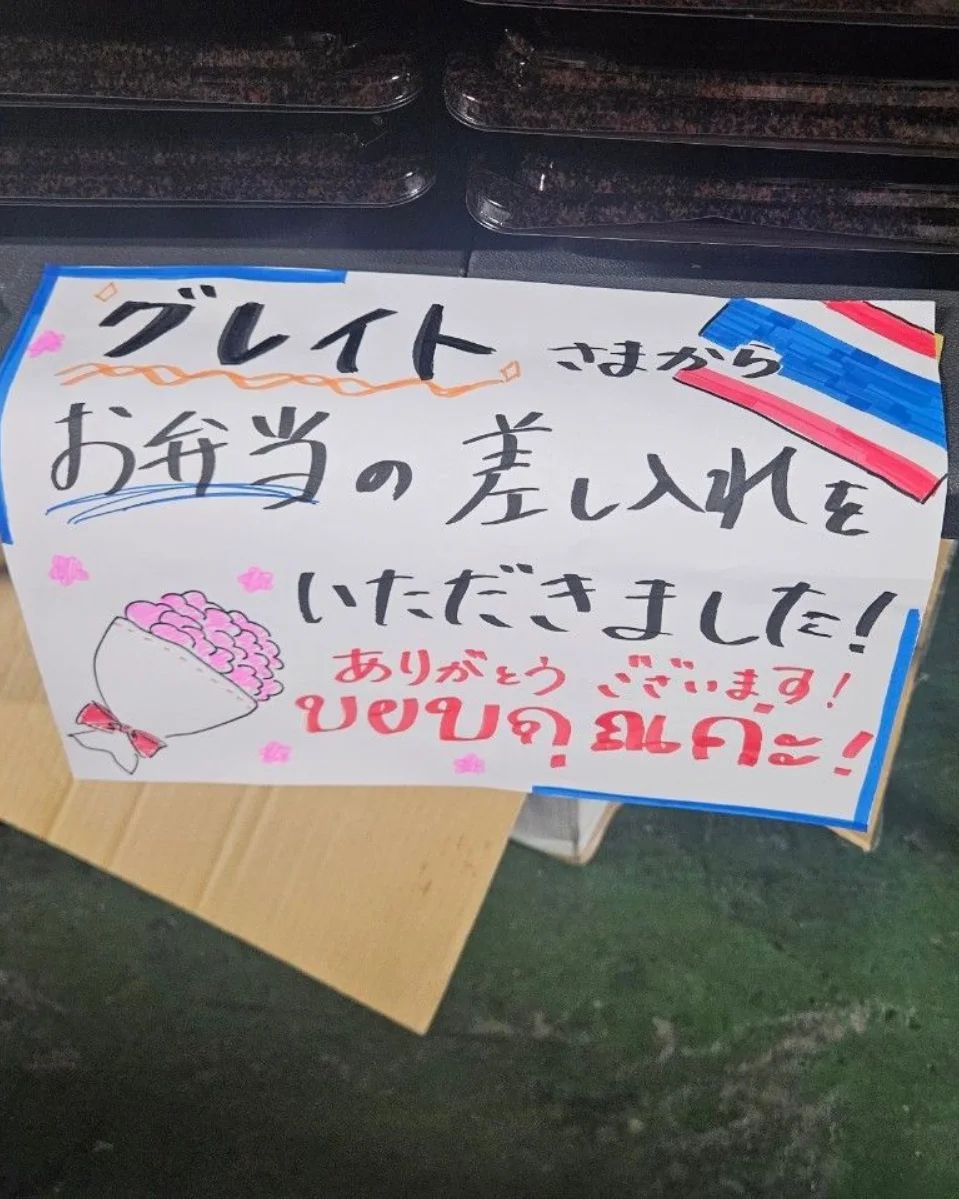 グレイト さまから
お弁当の差し入れを
いただきました！
ありがとうございます！
ขอบคุณค่ะ！